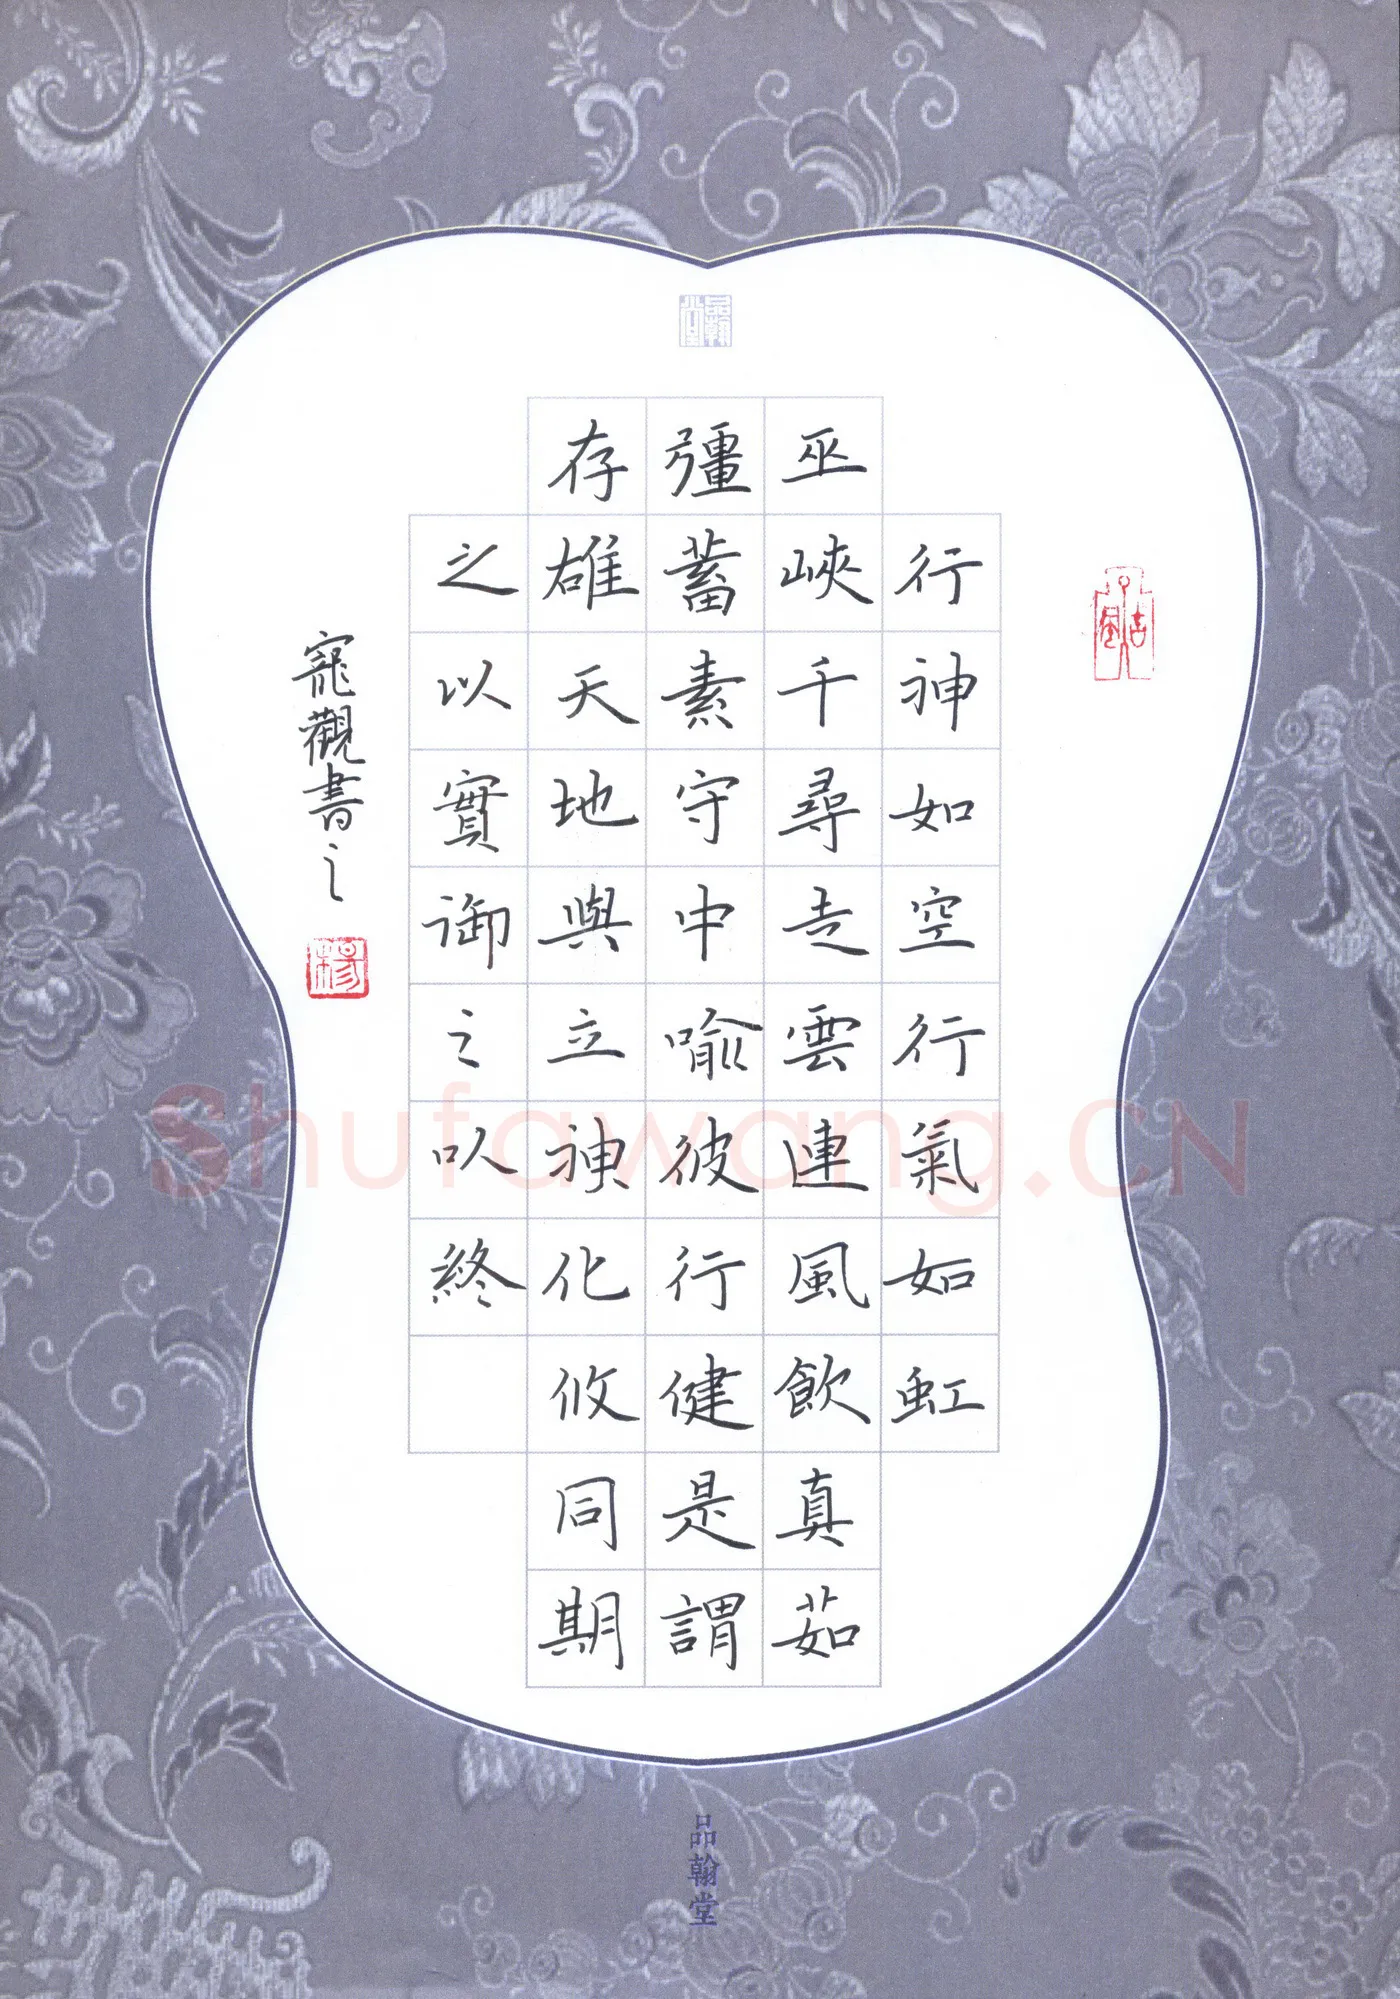 品翰堂
行神如空行氣如虹
巫峽千尋走雲連風飲真茹
彊蓄素守中喻彼行健是謂
存雄天地與立神化攸同期
之以實御之以終
寵觀書之
楊
Shufawang.CN
品翰堂